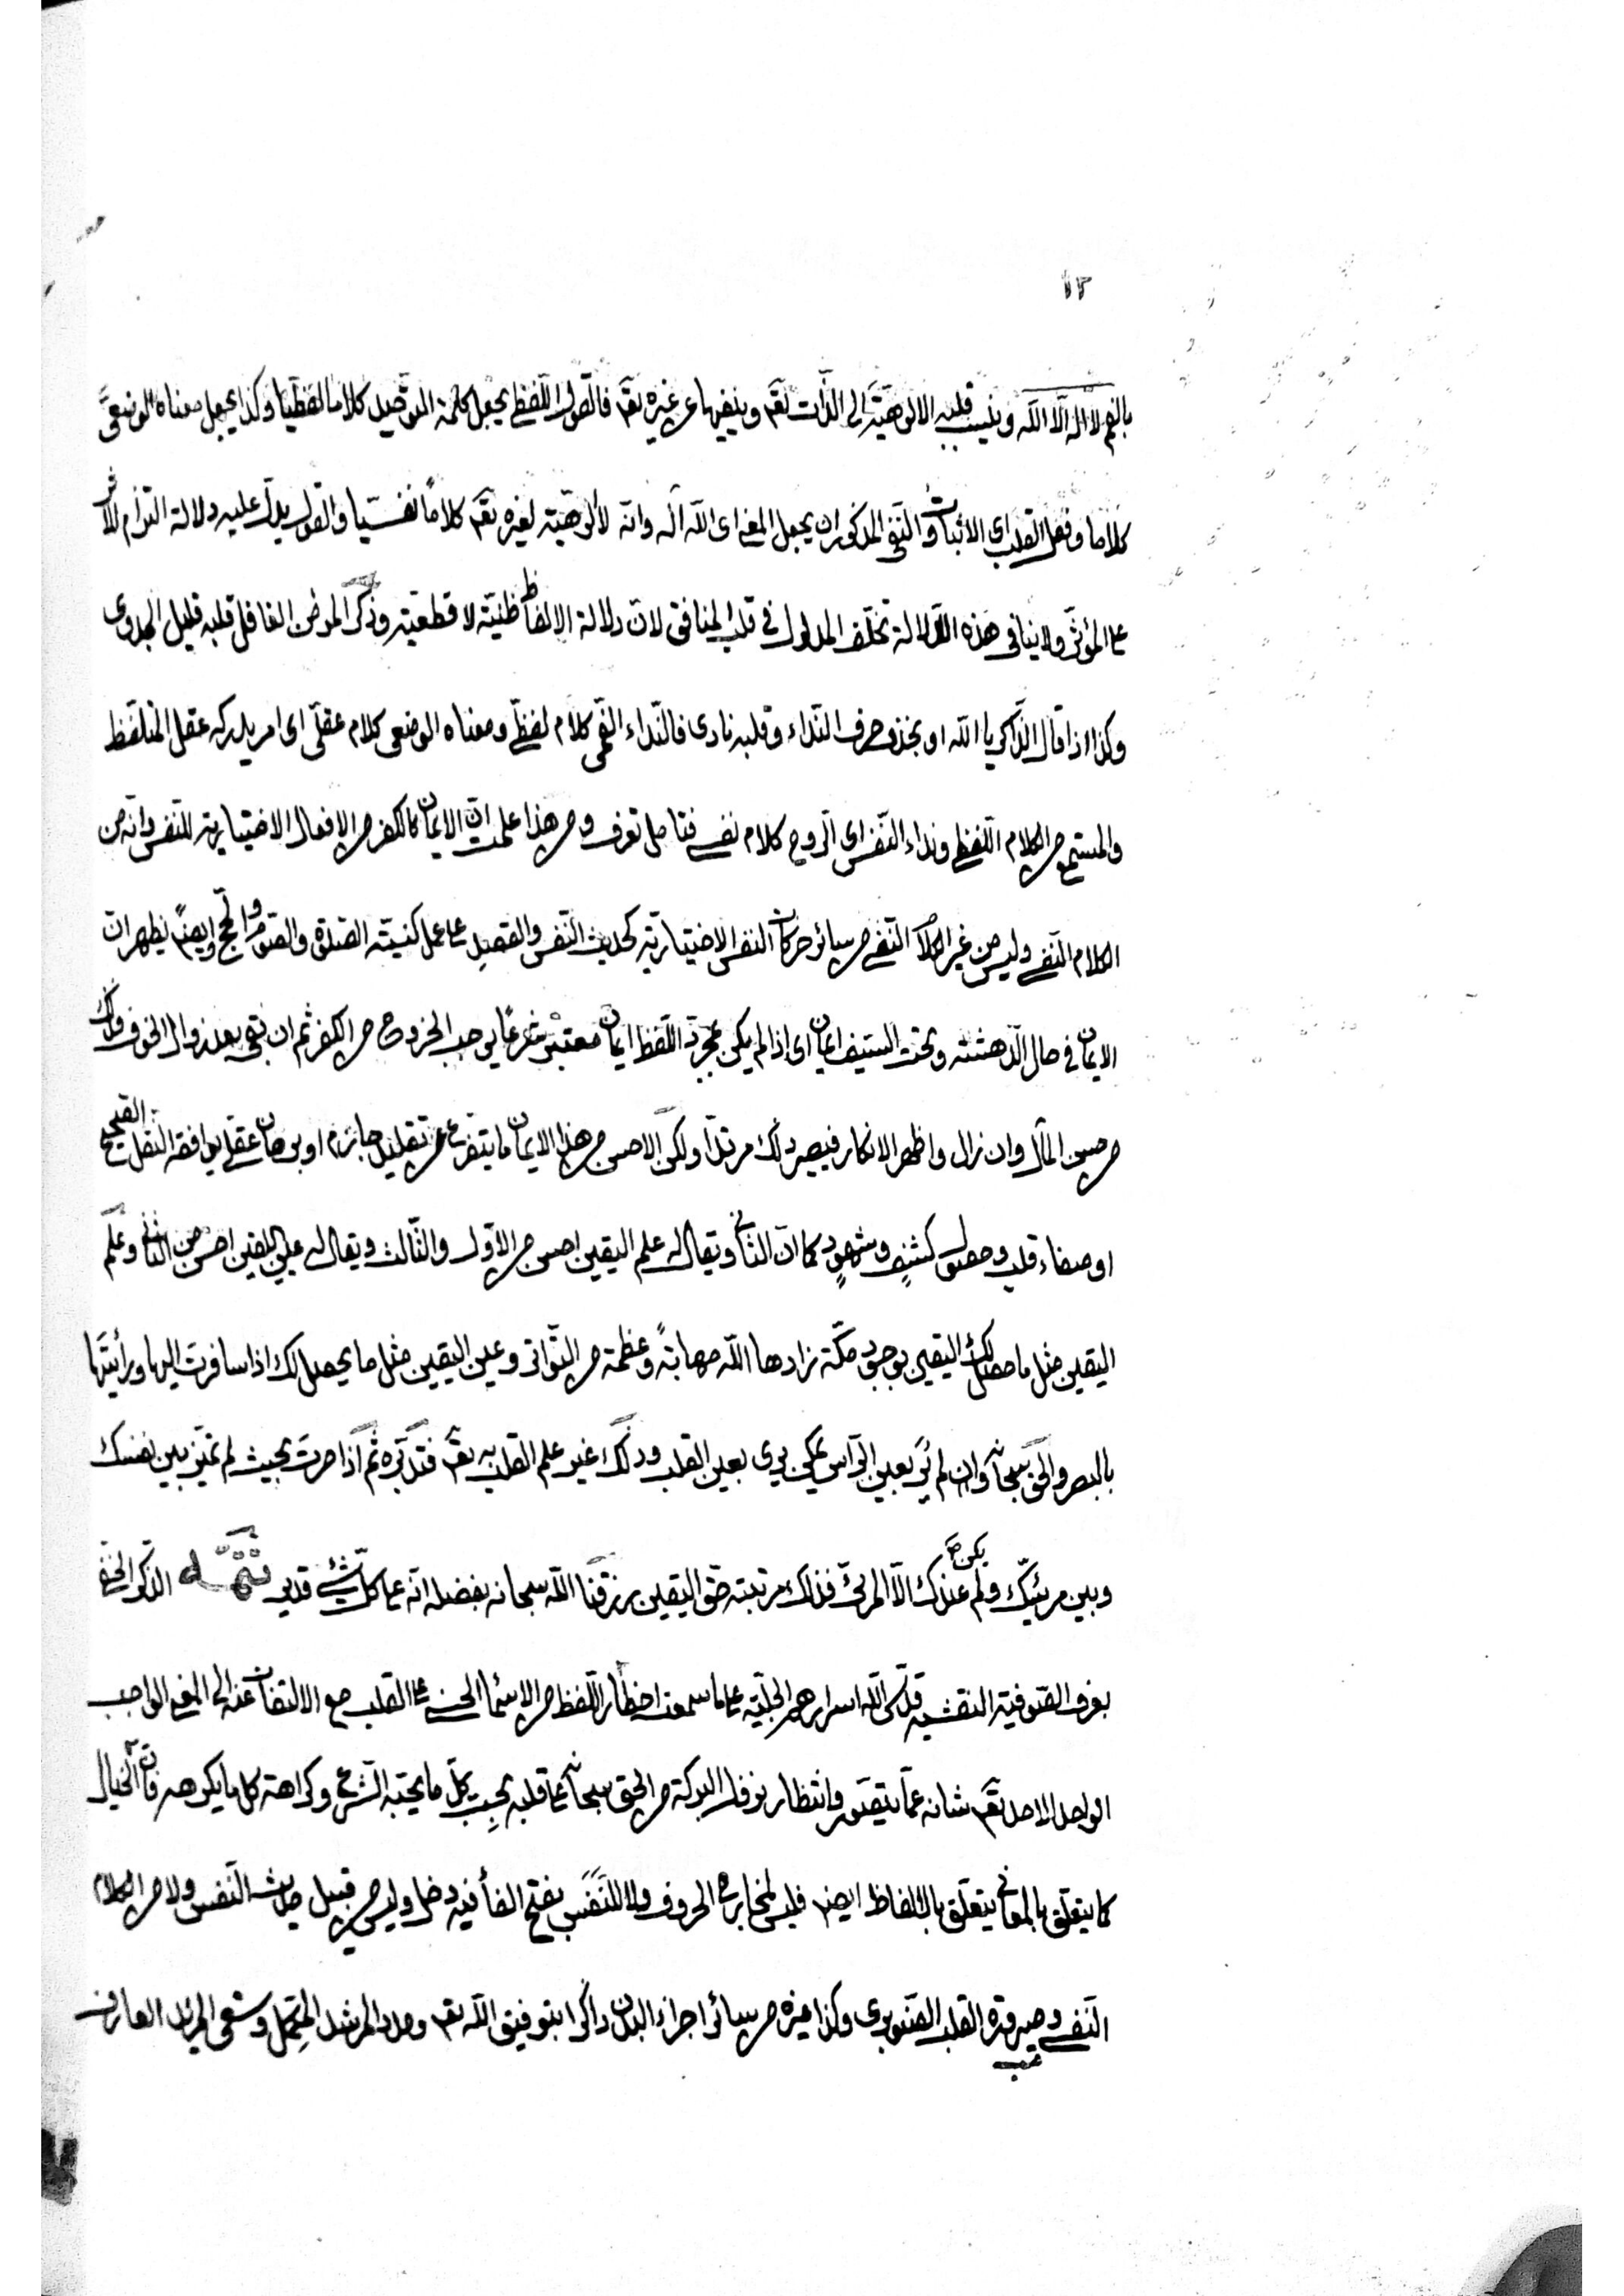 ١٢
بالفم لا اله الا الله وينسب قلبه الالوهيّة الى الذّات تعم وينفيها عن غيره تعم فالقول اللّفظى يجعل كلمة التوحيد كلاما لفظيّا وكذا يجعل معناه الوضعىّ
كلاما وفعل القلب اى الاثبات والنّفى المذكوران يجعل المعنى اى الله اله وانّه لا الوهيّة لغيره تعم كلامًا نفسيّا والقول يدلّ عليه دلالة التزام للاثر
على المؤثّر ولا ينافى هذه الدّلالة تخلّف المدلول فى قلب المنافق لانّ دلالة الالفاظ ظنيّة لا قطعيّة وذكر المؤمن الغافل قلبه قليل الجدوى
وكذا اذا قال الذّاكر يا الله او بحذف حرف النّداء وقلبه نادى فالنّداء الفمّى كلام لفظىّ ومعناه الوضعى كلام عقلىّ اى امر يدركه عقل المتلفّظ
والمستمع من الكلام اللّفظى ونداء النّفس اى الرّوح كلام نفسى فتامل تعرف ومن هذا علمت انّ الايمان كالكفر من الافعال الاختيارية للنّفس وانّه من
الكلام النّفسى وليس من غير الكلام النّفسى من سائر حركات النفس الاختياريّة كحديث النّفس والقصد على عمل كنيّة الصّلوة والصّوم والحجّ وايضًا يظهر انّ
الايمان فى حال الدّهشة وتحت السّيف ايمان اى اذا لم يكن بمجرّد اللّفظ ايمان معتبر شرعًا يوجب الخروج من الكفر ثم ان بقى بعد زوال الخوف فذلك
من حسن المآل وان زال واظهر الانكار فيصير ذلك مرتدّا ولكن الاحسن من هذا الايمان ما يتفرّع عن تقليد جازم او برهان عقلى يوافقه النّقل الصّحيح
او صفاء قلب وحصول كشفٍ وشهودٍ كما انّ الثانى ويقال له علم اليقين احسن من الاوّل والثّالث ويقال له عين اليقين احسن من الثّانى وعلم
اليقين مثل ما حصل لك اليقين بوجود مكّة زادها الله مهابةً وعظمة من التّواتر وعين اليقين مثل ما يحصل لك اذا سافرت اليها ورأيتها
بالبصر والحقّ سبحانه وان لم يُرَ بعين الرّأس يمكن يرى بعين القلب وذلك غير علم القلب به تعم فتدبّره ثم اذا صرت بحيث لم تميّز بين نفسك
وبين مرئيّك ولم يكن عندك الاّ المرئىّ فذلك مرتبة حقّ اليقين رزقنا الله سبحانه بفضله انّه على كلّ شئ قدير تتمّه الذكر الخفىّ
بعرف الصّوفيّة النقشبنديّة قدّس الله اسرارهم الجليّة على ما سمعت اخطار اللّفظ من الاسماء الحسنى على القلب مع الالتفات عنه الى المعنى الواجب
الواحد الاحد تعم شانه عمّا يتصوّر وانتظار نوفل البركة من الحقّ سبحانه على قلبه بحبّ كلّ ما يحبّه الشّرع وكراهة كل ما يكرهه فانّ الخيال
كما يتعلّق بالمعانى يتعلّق بالالفاظ ايضا فليس لمخارج الحروف ولا للنّفَس بفتح الفاء فيه دخل وليس من قبيل حديث النّفس ولا من الكلام
النّفسى وصيرورة القلب الصّنوبرى وكذا غيره من سائر اجزاء البدن ذاكرا بتوفيق الله تعم ومدد المرشد المكمّل وسعى المريد العارف